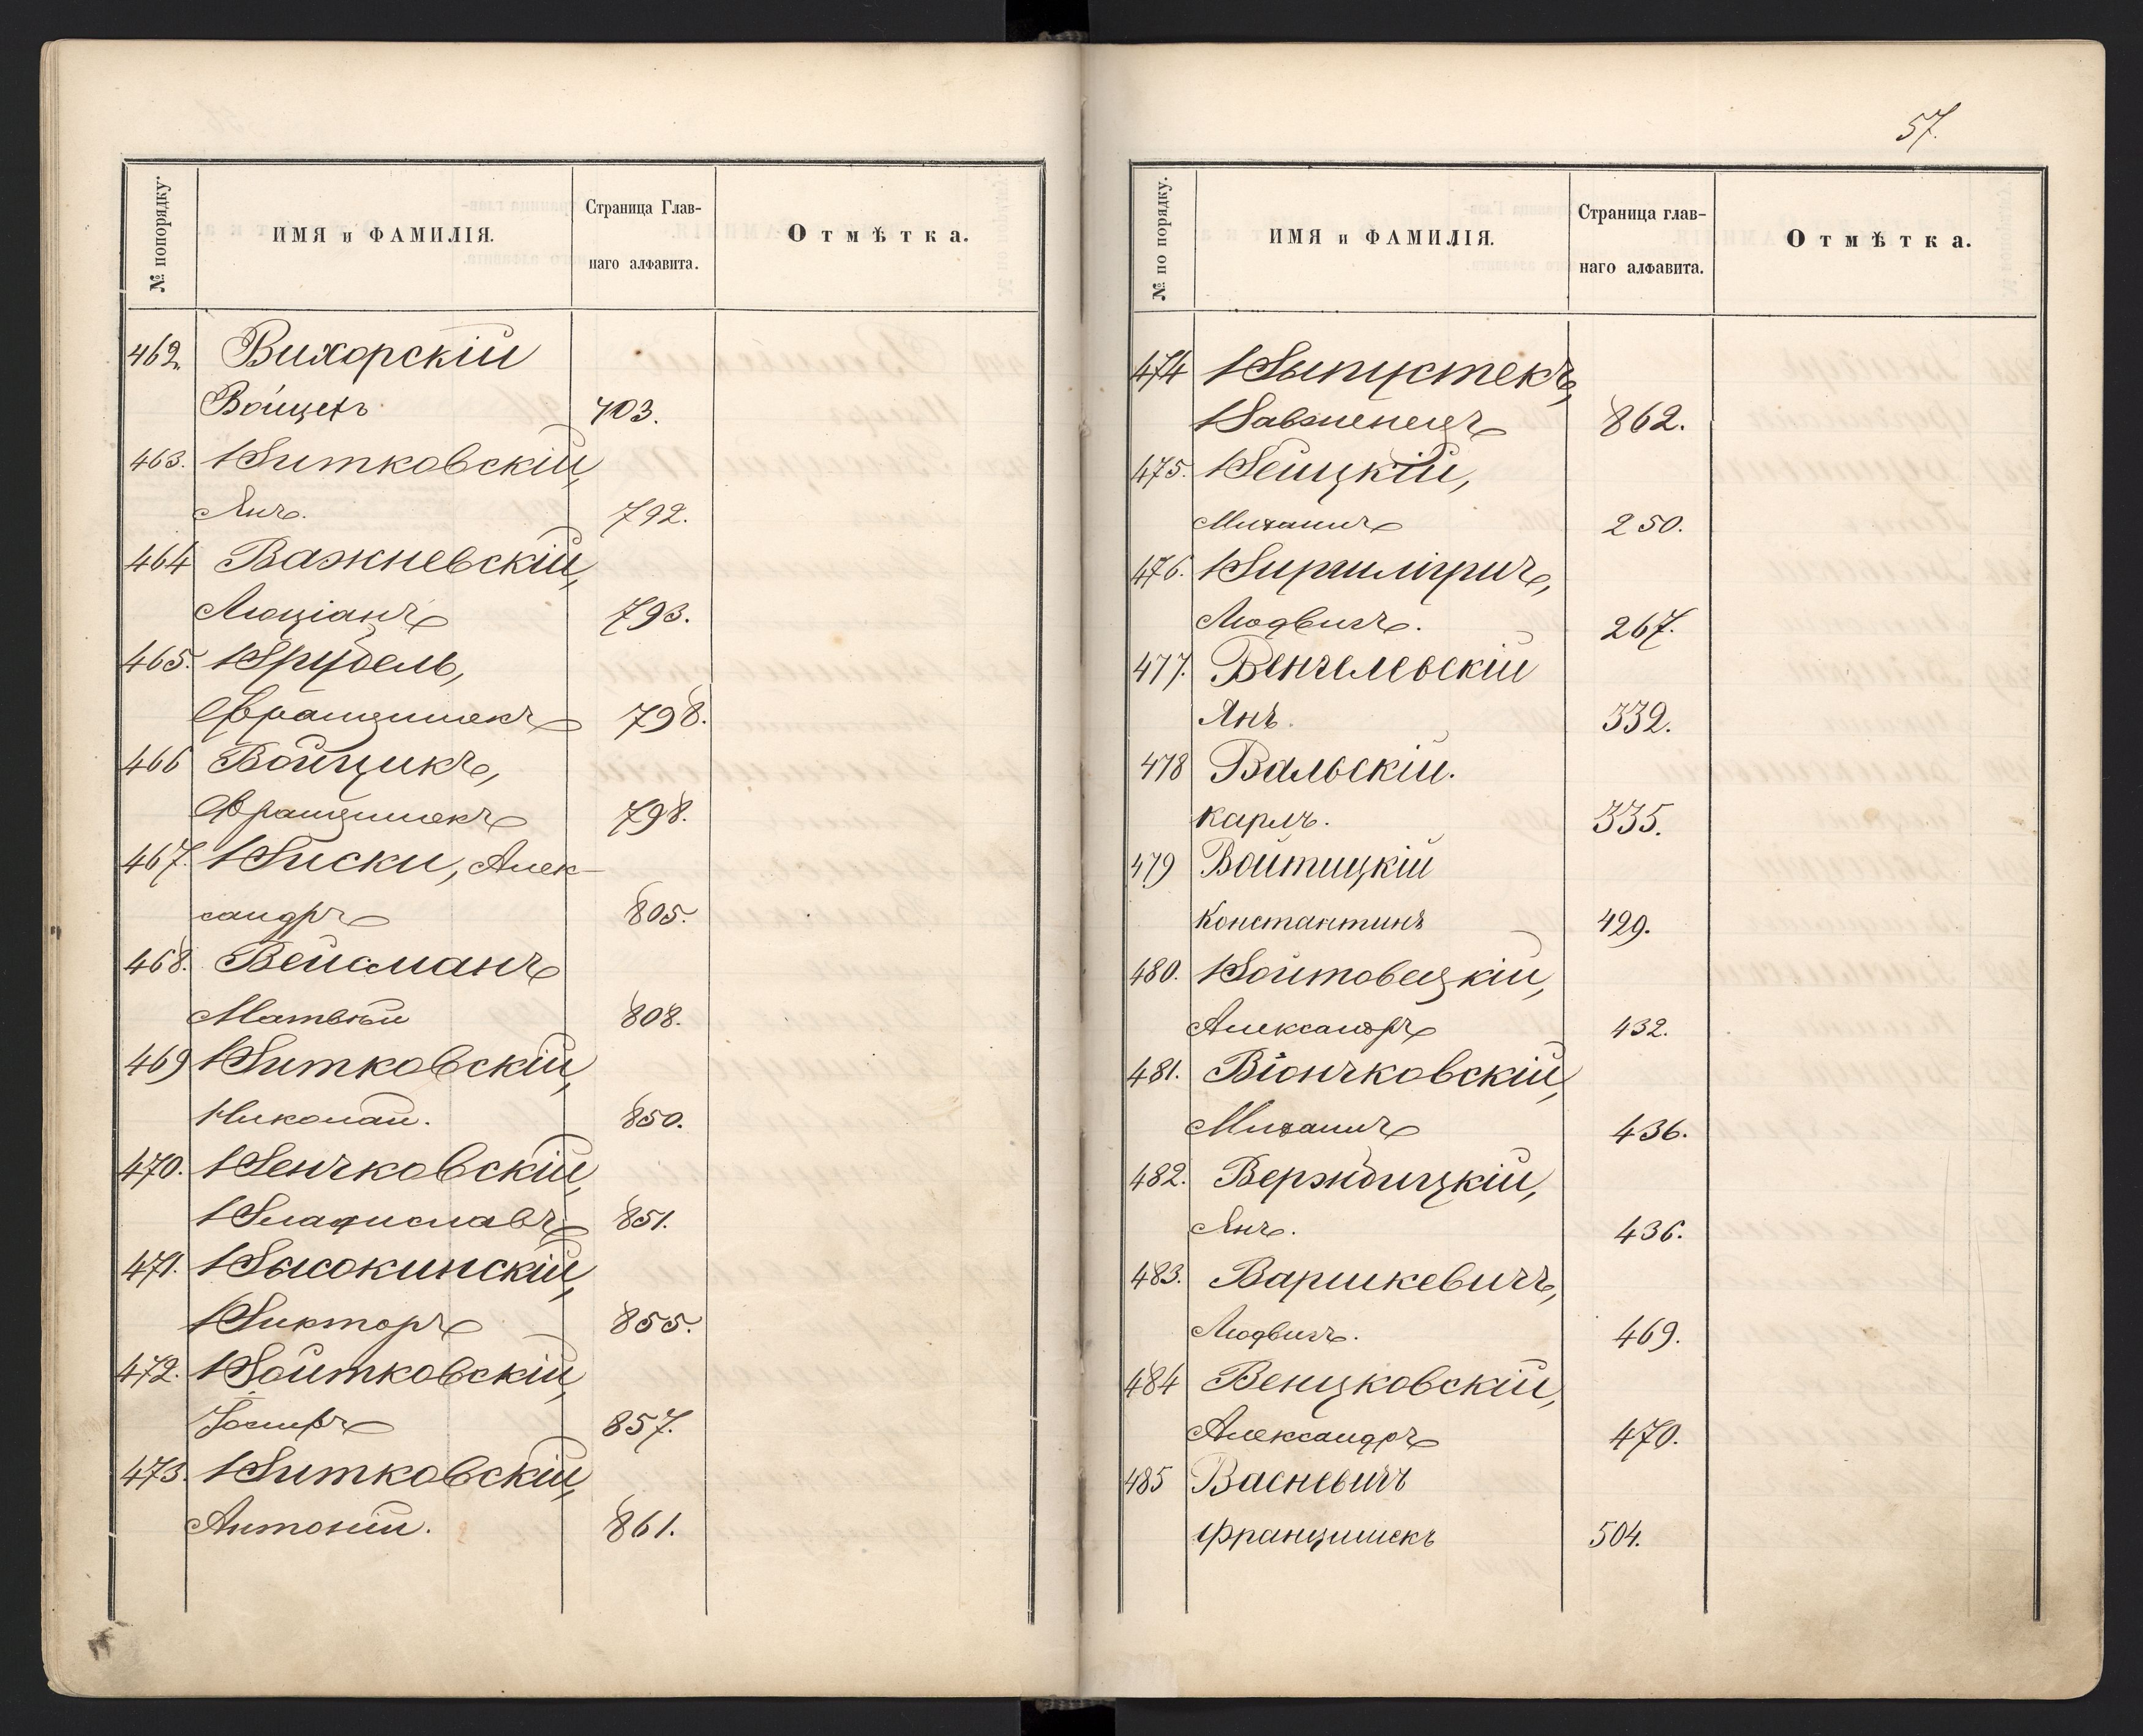 № попорядку.
ИМЯ и ФАМИЛІЯ.
Страница Глав-
наго алфавита.
Отмѣтка.
462. Вихорскій
Войцехъ 703.
463. Витковскій,
Янъ. 792.
464 Важневскій,
Люціанъ 793.
465. Врубель,
Францишекъ 798.
466 Войцикъ,
Францишекъ 798.
467. Виски, Алек-
сандръ 805.
468. Вейсманъ
Матвѣй 808.
469 Витковскій,
Николай. 850.
470. Венчковскій,
Владиславъ 851.
471. Высокинскій,
Викторъ 855.
472. Войтковскій,
Іосифъ 857.
473. Витковскій,
Антоній. 861.
57.
№ по порядку.
ИМЯ и ФАМИЛІЯ.
Страница глав-
наго алфавита.
Отмѣтка.
474 Выпустекъ,
Вавженецъ 862.
475. Вейцкій,
Михаилъ 250.
476.
Людвигъ. 267.
477. Венгелевскій
Янъ. 332.
478 Вальскій.
Карлъ. 335.
479 Войтицкій
Константинъ 429.
480. Войтовецкій,
Александръ 432.
481. Віончковскій,
Михаилъ 436.
482. Вержбицкій,
Янъ. 436.
483. Варшкевичъ,
Людвигъ. 469.
484 Венцковскій,
Александръ 470.
485 Васневичъ
Францишекъ 504.